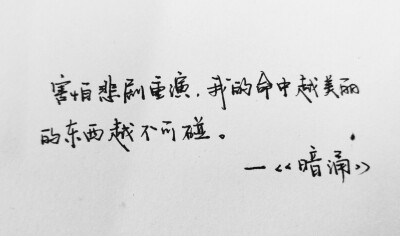 害怕悲剧重演，我的命中越美丽
的东西越不可碰。
—《暗涌》